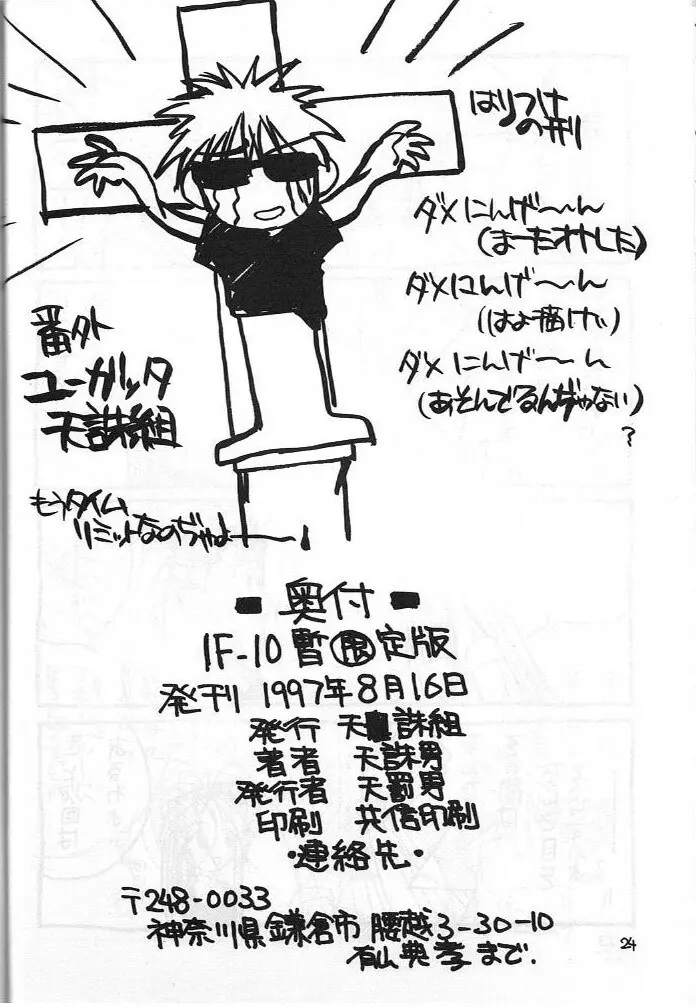 はりつけ
の刑
ダメにんげ〜〜ん
(まーたオナした)
ダメにんげ〜〜ん
(はよ描けぃ)
ダメにんげ〜〜ん
(あそんでるんぢゃない)
?
番外
ユーガッタ
天誅組
もうタイム
リミットなのぢゃよ――!
奥付
IF-10 暫限定版
発刊 1997年8月16日
発行 天誅組
著者 天誅男
発行者 天罰男
印刷 共信印刷
・連絡先・
〒248-0033
神奈川県鎌倉市 腰越3-30-10
有山典孝まで.
24